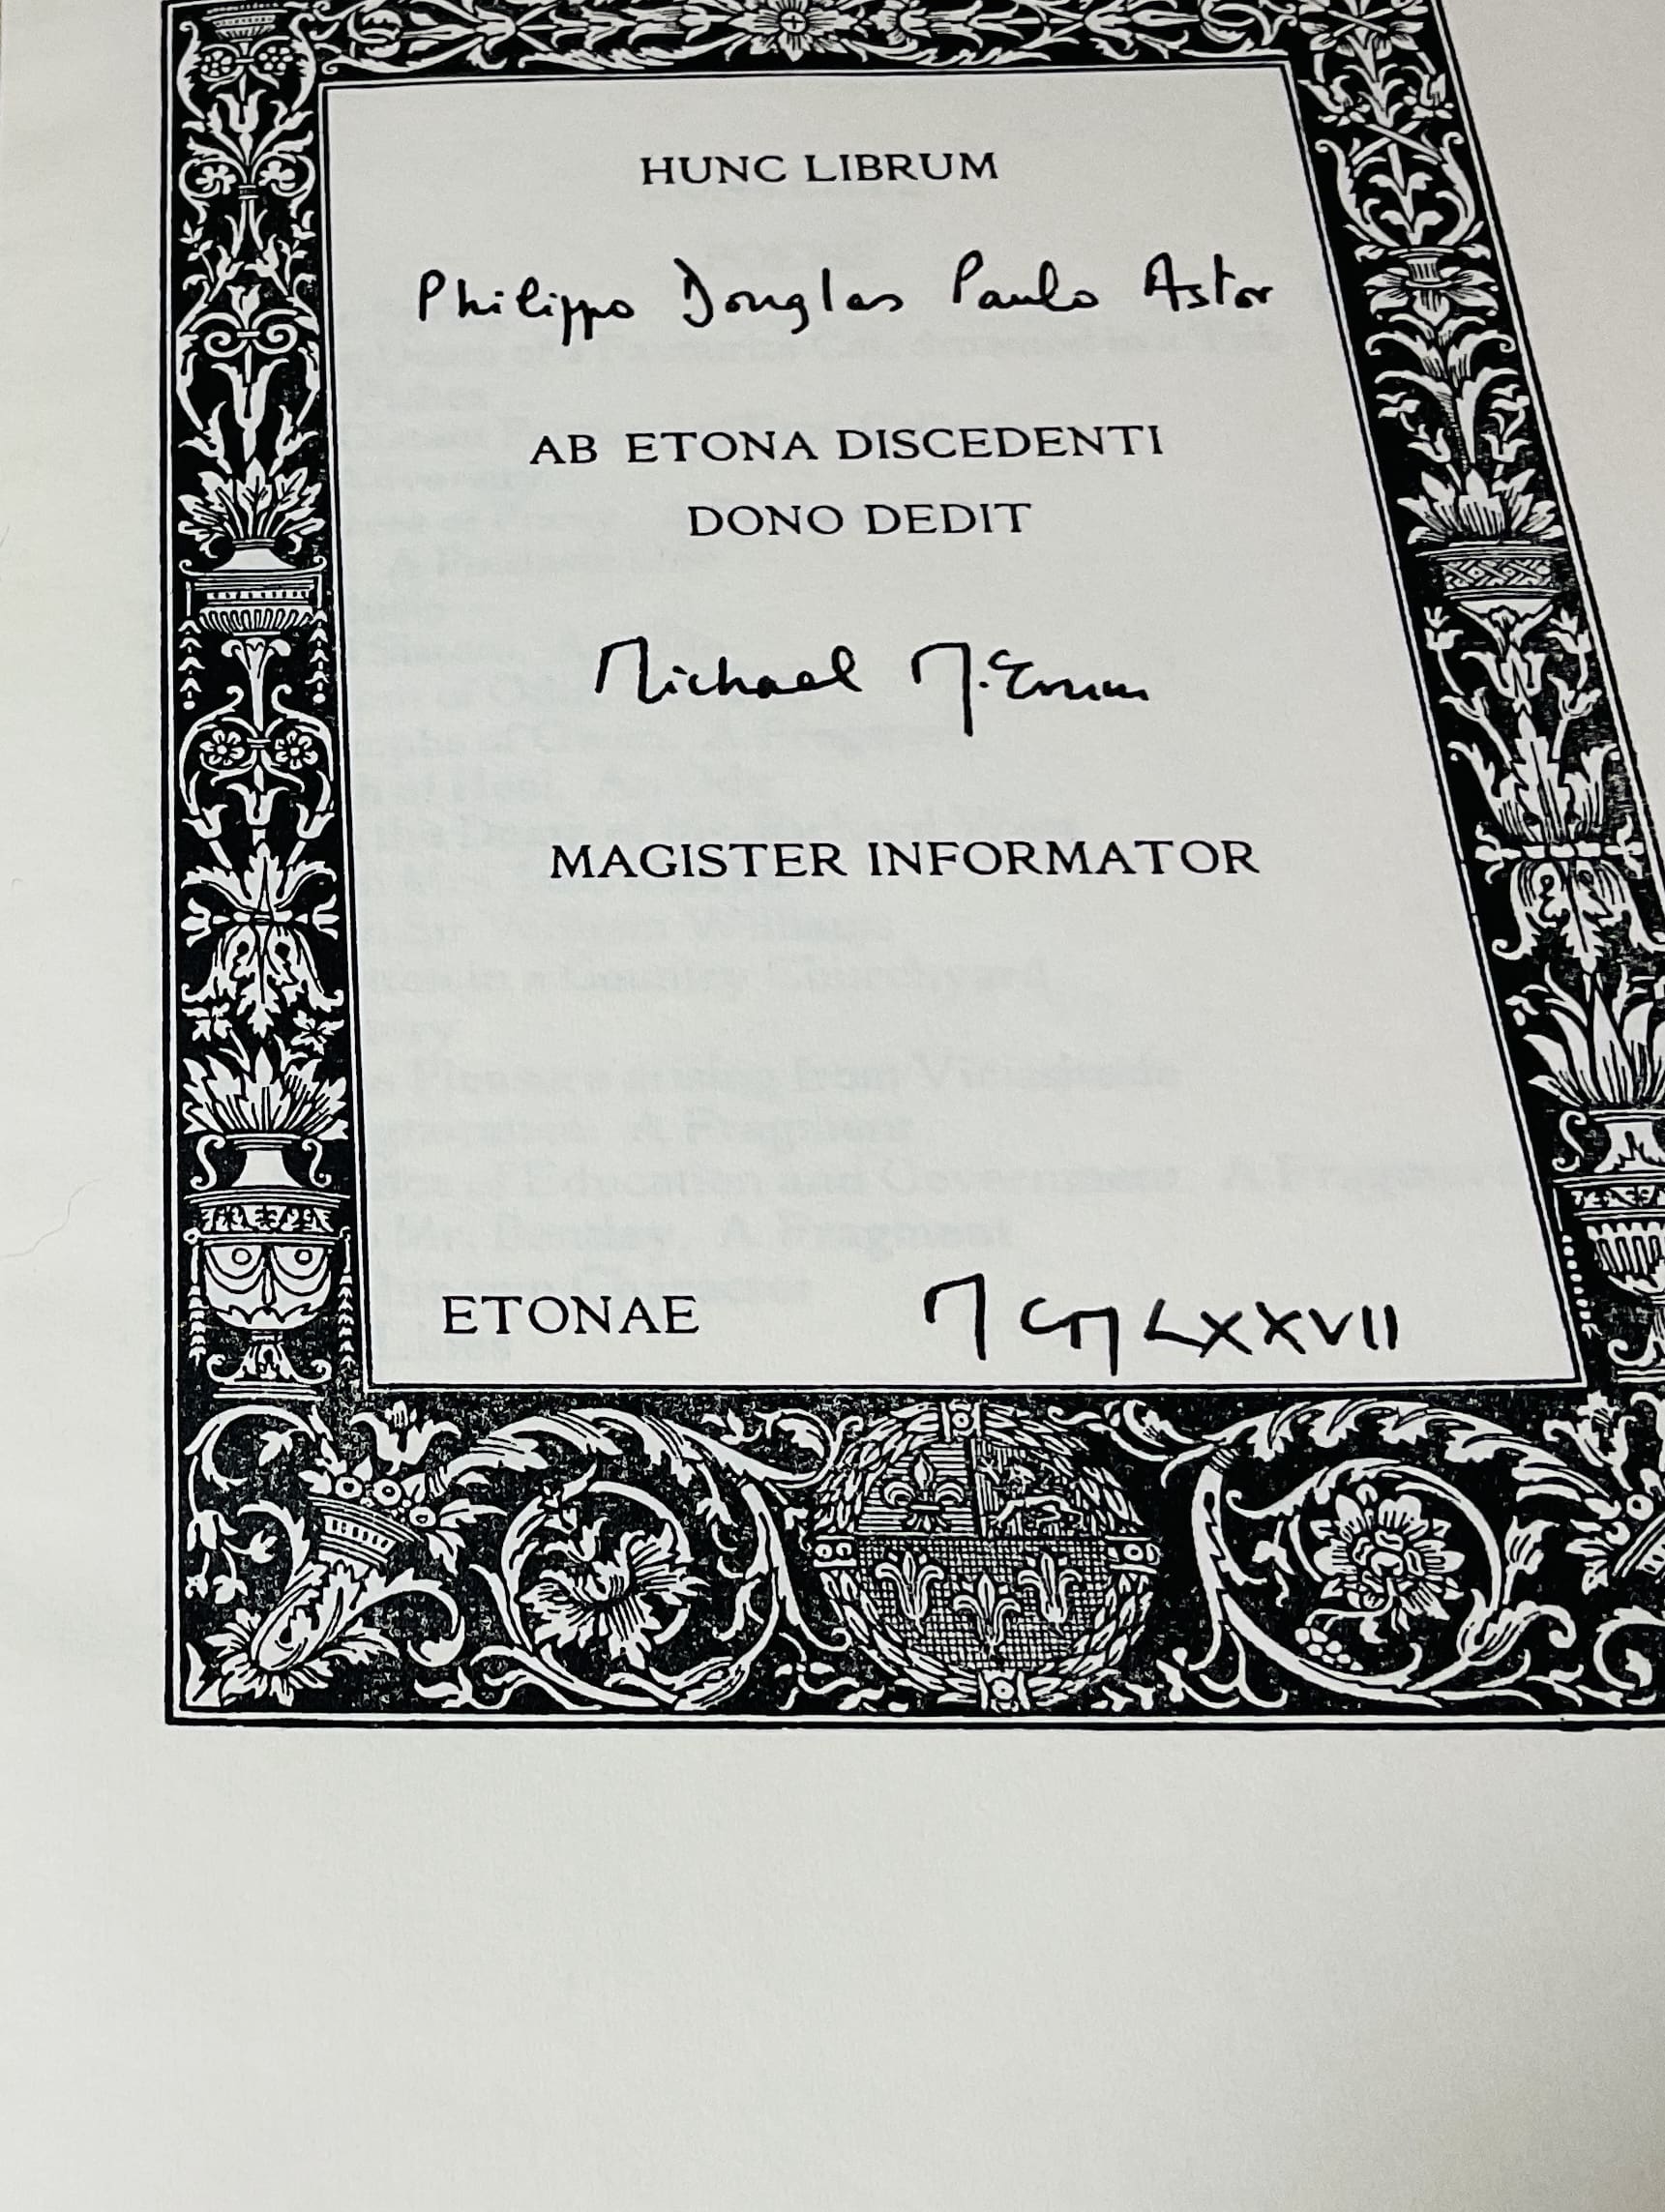 HUNC LIBRUM
Philippo Douglas Paulo Astor
AB ETONA DISCEDENTI
DONO DEDIT
Michael McCrum
MAGISTER INFORMATOR
ETONAE MCMLXXVII